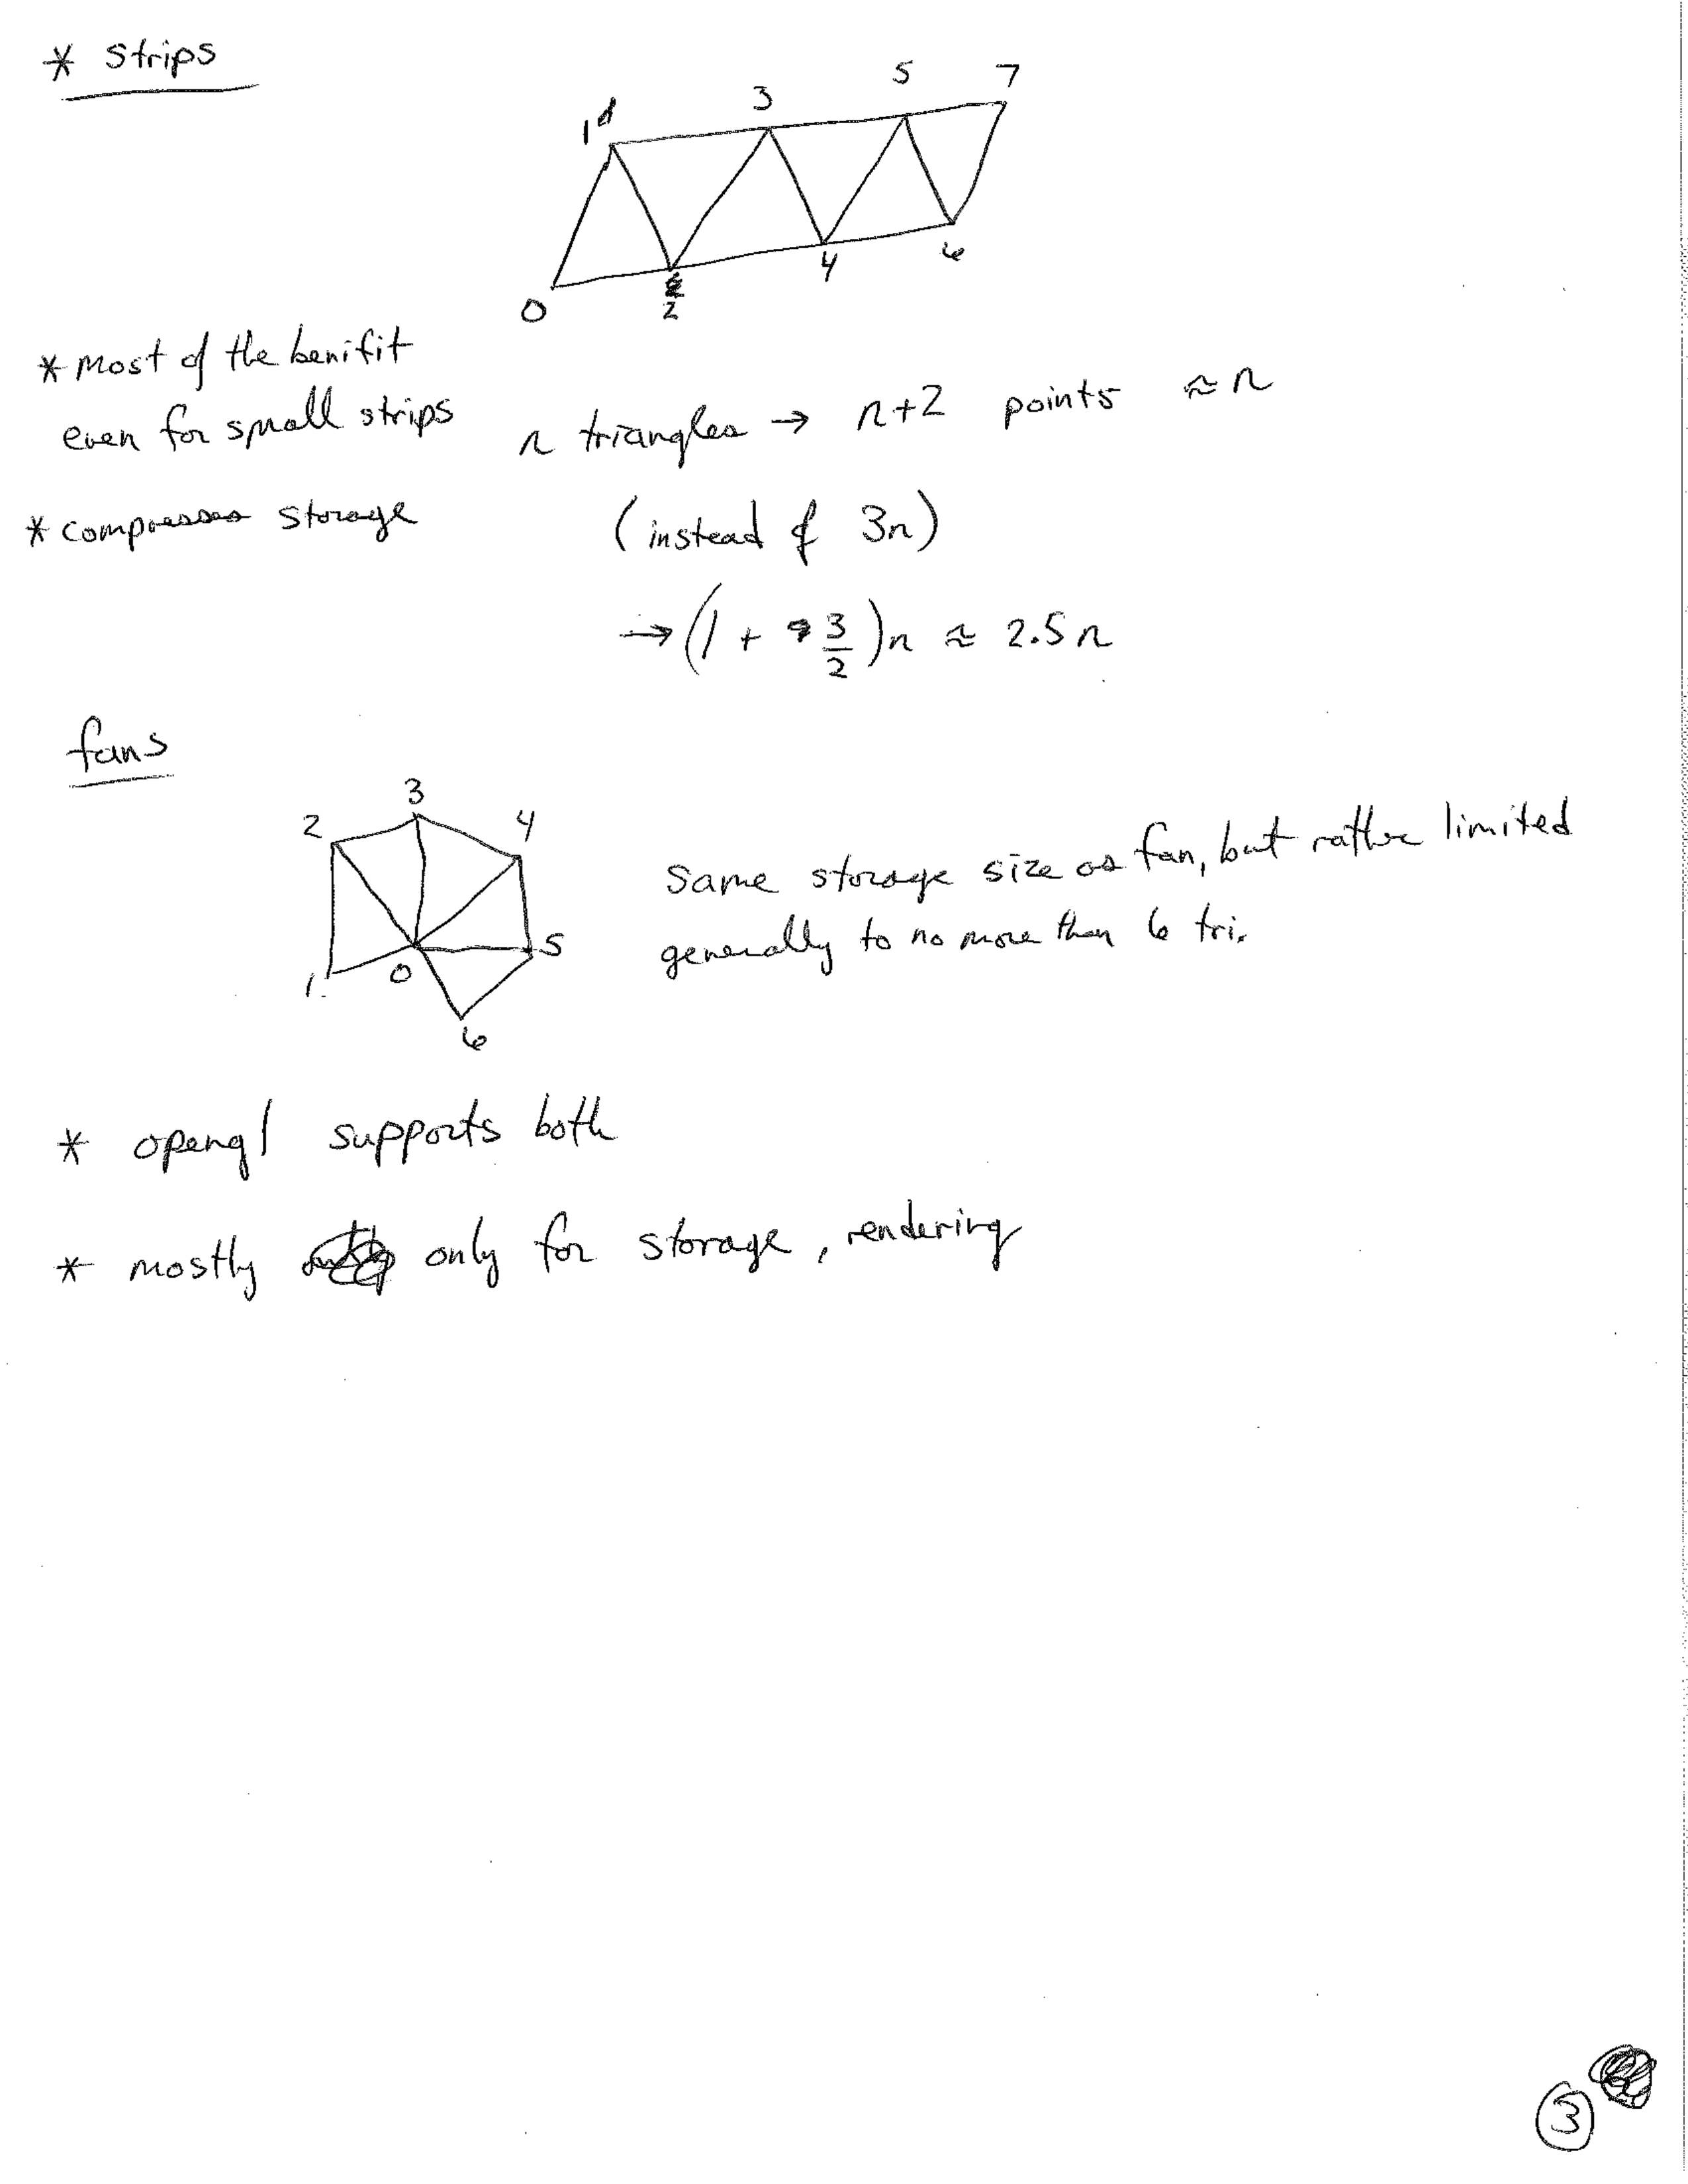 * strips
1 3 5 7
0 2 4 6
* most of the benifit
even for small strips
n triangles → n+2 points ≈ n
* compresses storage
(instead of 3n)
→ (1 + 3/2)n ≈ 2.5n
fans
2 3 4
1 0 5
6
Same storage size as fan, but rather limited
generally to no more than 6 tri.
* opengl supports both
* mostly only for storage, rendering
3